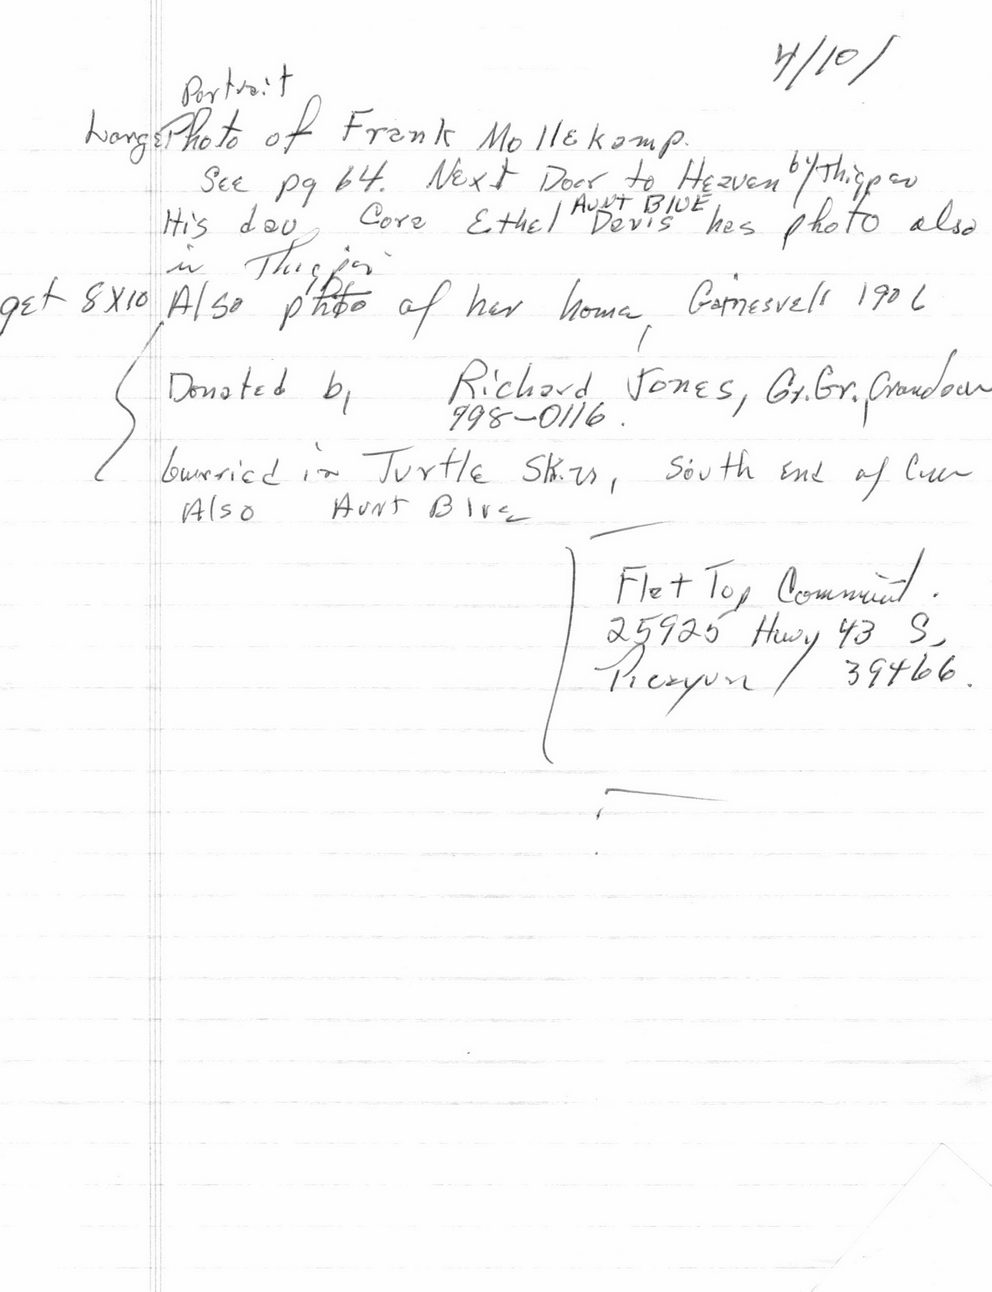 4/10/
Portrait
Large Photo of Frank Mollekamp.
See pg 64. Next Door to Heaven by Thigpen
Aunt BLUE
His dau, Cora Ethel Davis has photo also
in Thigpen
get 8X10 Also photo of her home, Gainesvell 1906
Donated by Richard Jones, Gr. Gr. Grandson
998-0116.
burried in Turtle Skin, South End of
Also Aunt Blue
Flat Top Communit.
25925 Hwy 43 S,
Picayun 39466.